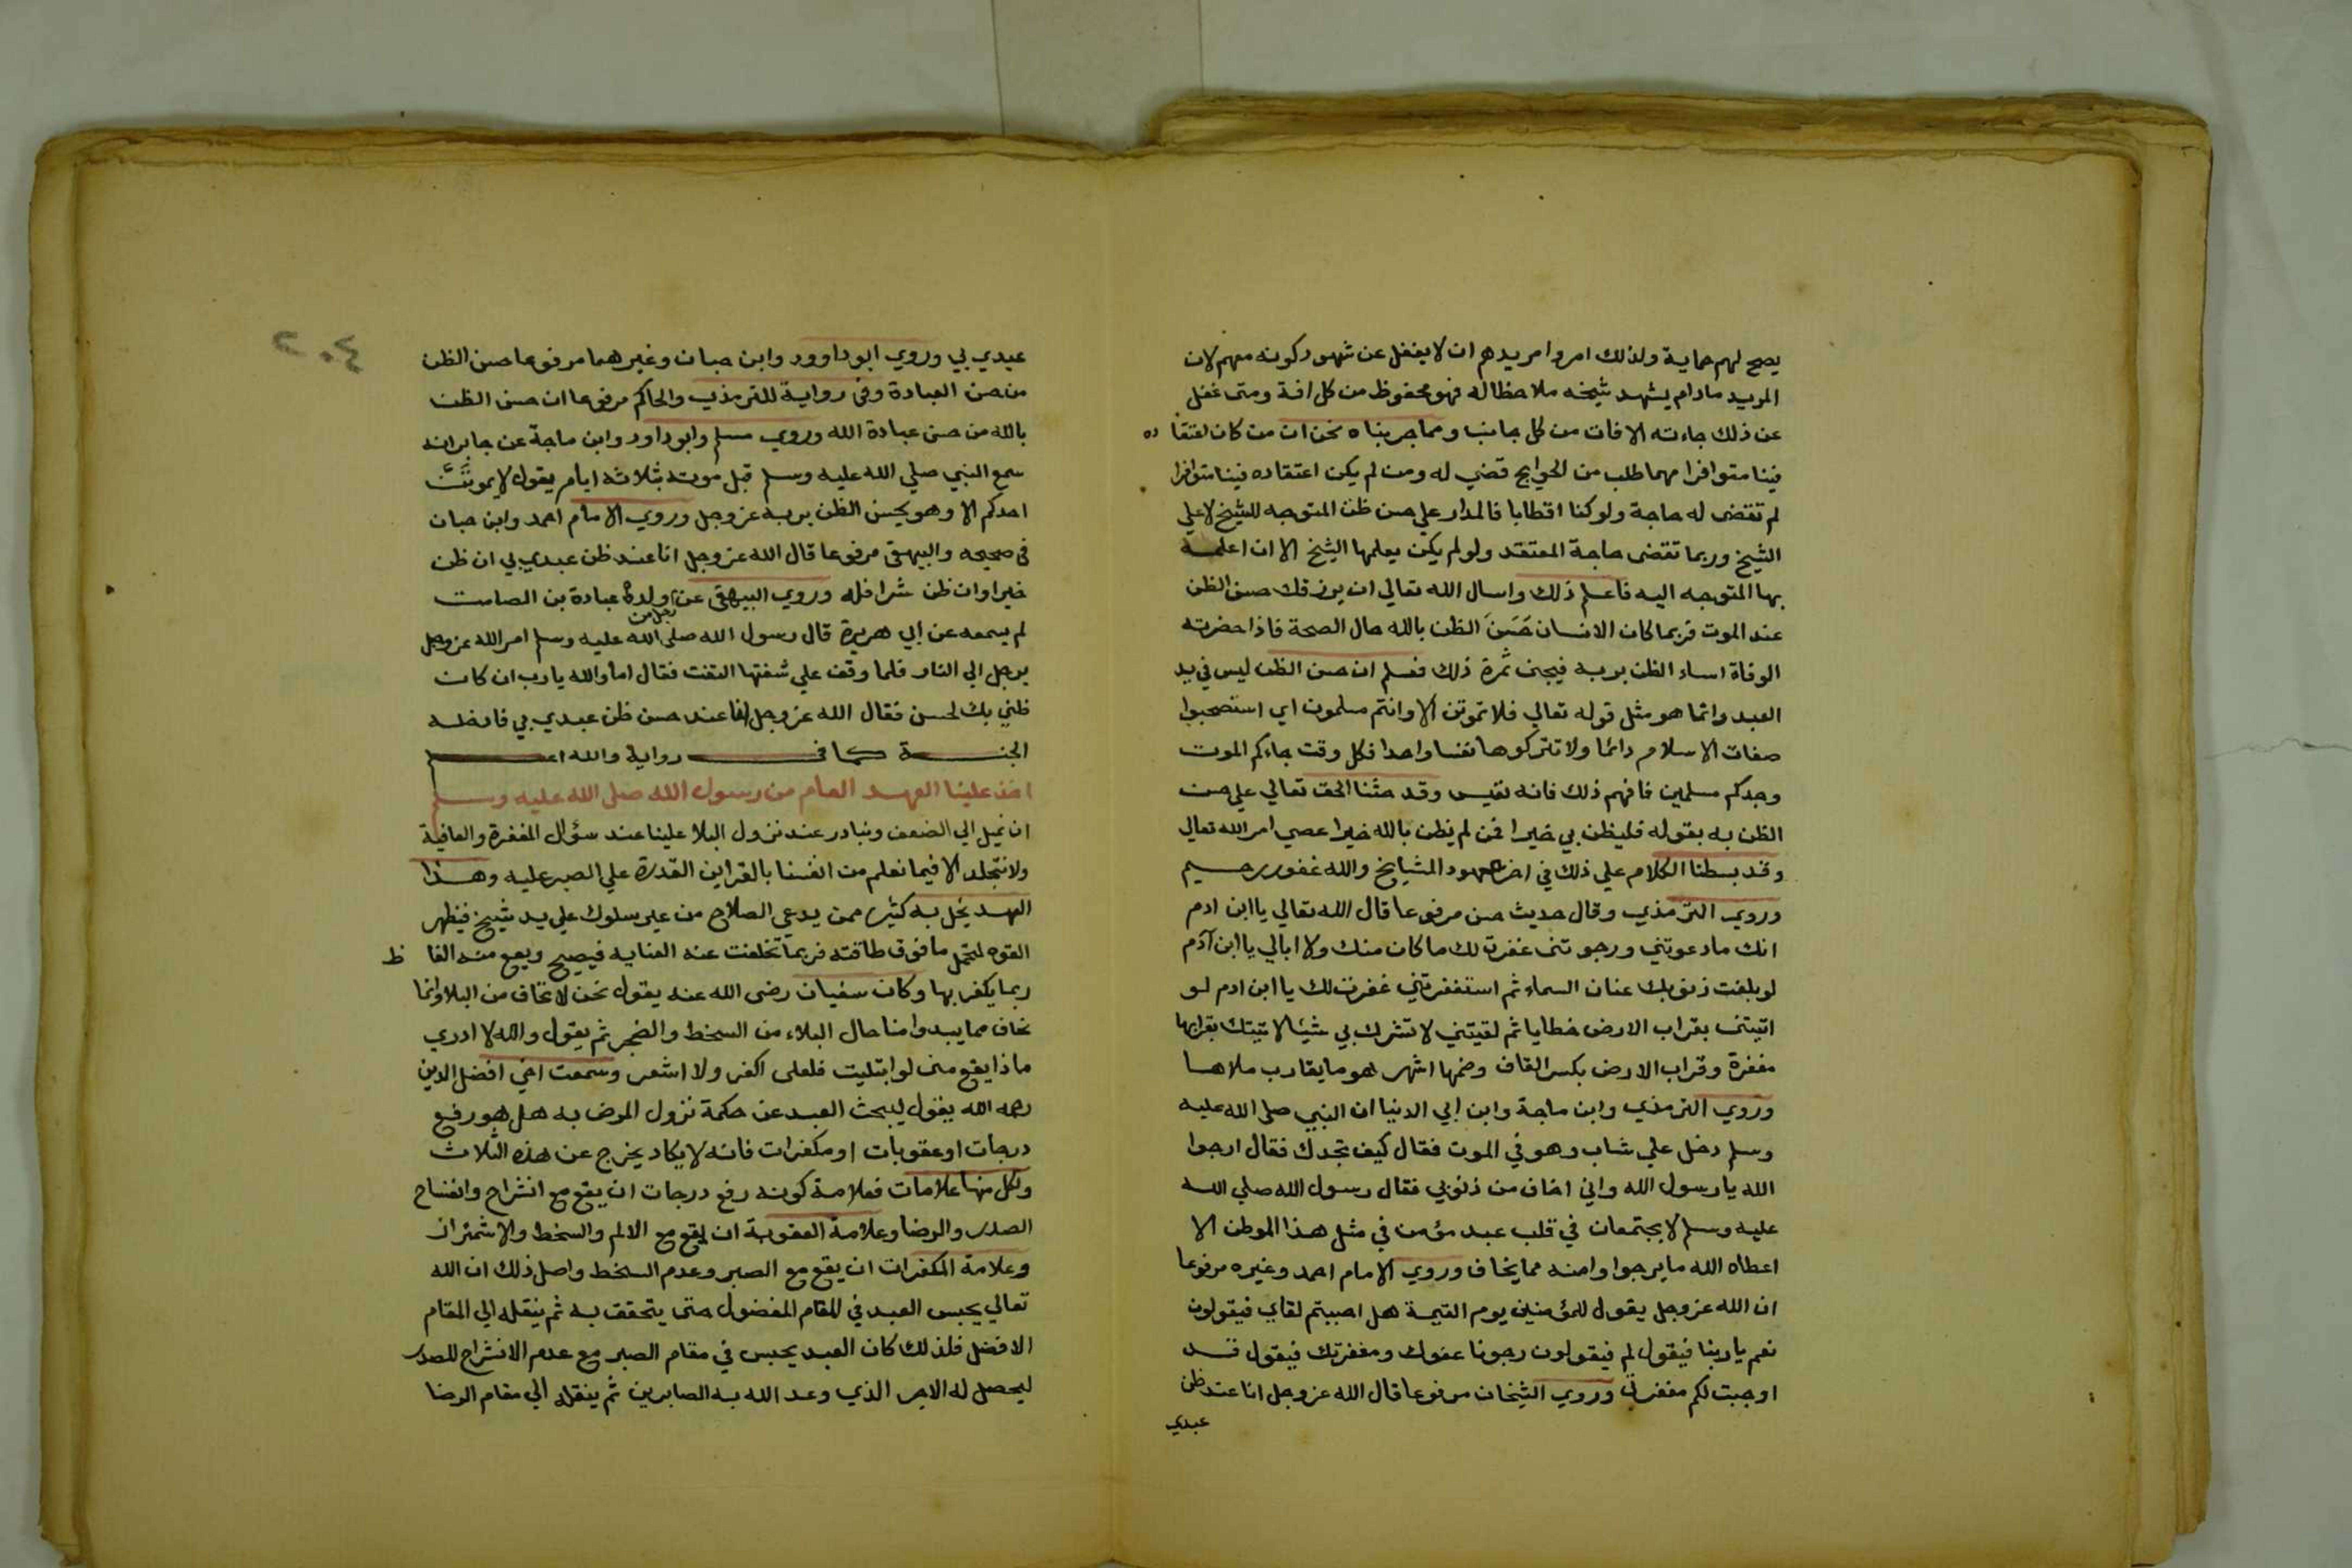 يصح لهم حماية ولذلك امروا مريدهم ان لا يغفل عن شهود كونه معهم لان
المريد مادام يشهد شيخه ملاحظا له فهو محفوظ من كل افة ومتى غفل
عن ذلك جاءته الافات من كل جانب ومما جربناه نحن ان من كان اعتقاده
فينا متوافرا مهما طلب من الحوايج قضي له ومن لم يكن اعتقاده فينا متوافرا
لم تقتضى له حاجة ولو كنا اقطابا فالمدار علي حسن ظن المتوجه للشيخ لا علي
الشيخ وربما تقتضى حاجة المعتقد ولو لم يكن يعلمها الشيخ الا ان اعلمه
بها المتوجه اليه فاعلم ذلك واسال الله تعالي ان يرزقك حسن الظن
عند الموت فربما كان الانسان حَسَنَ الظن بالله حال الصحة فاذا حضرته
الوفاة اساء الظن بربه فيجنى ثمرة ذلك فعلم ان حسن الظن ليس في يد
العبد وانما هو مثل قوله تعالي فلا تموتن الا وانتم مسلمون اي استصحبوا
صفات الاسلام دائما ولا تتركوها نفسا واحدا فكل وقت جاءكم الموت
وجدكم مسلمين فافهم ذلك فانه نفيس وقد حثنا الحق تعالي علي حسن
الظن به بقوله فليظن بي خيرا فمن لم يظن بالله خيرا عصى امر الله تعالي
وقد بسطنا الكلام علي ذلك في اخر عهود المشايخ والله غفور رحيم
وروي الترمذي وقال حديث حسن مرفوعا قال الله تعالي يا ابن ادم
انك ما دعوتني ورجوتنى غفرت لك ما كان منك ولا ابالي يا ابن آدم
لو بلغت ذنوبك عنان السماء ثم استغفرتني غفرت لك يا ابن ادم لو
اتيتنى بقراب الارض خطايا ثم لقيتني لا تشرك بي شيئا لاتيتك بقرابها
مغفرة وقراب الارض بكسر القاف وضمها اشهر هو ما يقارب ملاها
وروي الترمذي وابن ماجة وابن ابي الدنيا ان النبي صلى الله عليه
وسلم دخل علي شاب وهو في الموت فقال كيف تجدك فقال ارجوا
الله يا رسول الله واني اخاف من ذنوبي فقال رسول الله صلي الله
عليه وسلم لا يجتمعان في قلب عبد مؤمن في مثل هذا الموطن الا
اعطاه الله ما يرجوا وامنه مما يخاف وروي الامام احمد وغيره مرفوعا
ان الله عز وجل يقول للمؤمنين يوم القيمة هل احببتم لقاي فيقولون
نعم يا ربنا فيقول لم فيقولون رجونا عفوك ومغفرتك فيقول قد
اوجبت لكم مغفرتي وروي الشيخان مرفوعا قال الله عز وجل انا عند ظن
عبدي
٢٠٤
عبدي بي وروي ابو داوود وابن حبان وغيرهما مرفوعا حسن الظن
من حسن العبادة وفى رواية للترمذي والحاكم مرفوعا ان حسن الظن
بالله من حسن عبادة الله وروي مسلم وابو داود وابن ماجة عن جابر انه
سمع النبي صلي الله عليه وسلم قبل موته بثلاثه ايام يقول لا يموتَنَّ
احدكم الا وهو يحسن الظن بربه عز وجل وروي الامام احمد وابن حبان
فى صحيحه والبيهقى مرفوعا قال الله عز وجل انا عند ظن عبدي بي ان ظن
خيرا وان ظن شرا فله وروي البيهقى عن رجل من ولده عبادة بن الصامت
لم يسمعه عن ابي هريرة قال رسول الله صلى الله عليه وسلم امر الله عز وجل
برجل الي النار فلما وقف علي شفتها التفت فقال اما والله يا رب ان كان
ظني بك لحسن فقال الله عز وجل انا عند حسن ظن عبدي بي فادخله
الجنة كما فى رواية والله اعلم
اخذ علينا العهد العام من رسول الله صلى الله عليه وسلم
ان نميل الي الضعف ونبادر عند نزول البلا علينا عند سؤال المغفرة والعافية
ولا نتجلد الا فيما نعلم من انفسنا بالقراين القدرة علي الصبر عليه وهذا
العهد يخل به كثير ممن يدعي الصلاح من غير سلوك علي يد شيخ فيظهر
القوه لتحمل ما فوق طاقته فربما تخلفت عنه العنايه فيصيح ويقع منه الفاظ
ربما يكفر بها وكان سفيان رضى الله عنه يقول نحن لا نخاف من البلا وانما
نخاف مما يبدوا منا حال البلاء من السخط والضجر ثم يقول والله لا ادري
ماذا يقع منى لو ابتليت فلعلى اكفر ولا اشعر وسمعت اخي افضل الدين
رحمه الله يقول ليبحث العبد عن حكمة نزول المرض به هل هو رفع
درجات او عقوبات او مكفرات فانه لا يكاد يخرج عن هذه الثلاث
ولكل منها علامات فعلامة كونه رفع درجات ان يقع مع انشراح وانفساح
الصدر والرضا وعلامة العقوبة ان يقع مع الالم والسخط والاشمئزاز
وعلامة المكفرات ان يقع مع الصبر وعدم السخط واصل ذلك ان الله
تعالي يحبس العبد في المقام المفضول حتى يتحقق به ثم ينقله الي المقام
الافضل فلذلك كان العبد يحبس في مقام الصبر مع عدم الانشراح للصدر
ليحصل له الاجر الذي وعد الله به الصابرين ثم ينقله الي مقام الرضا